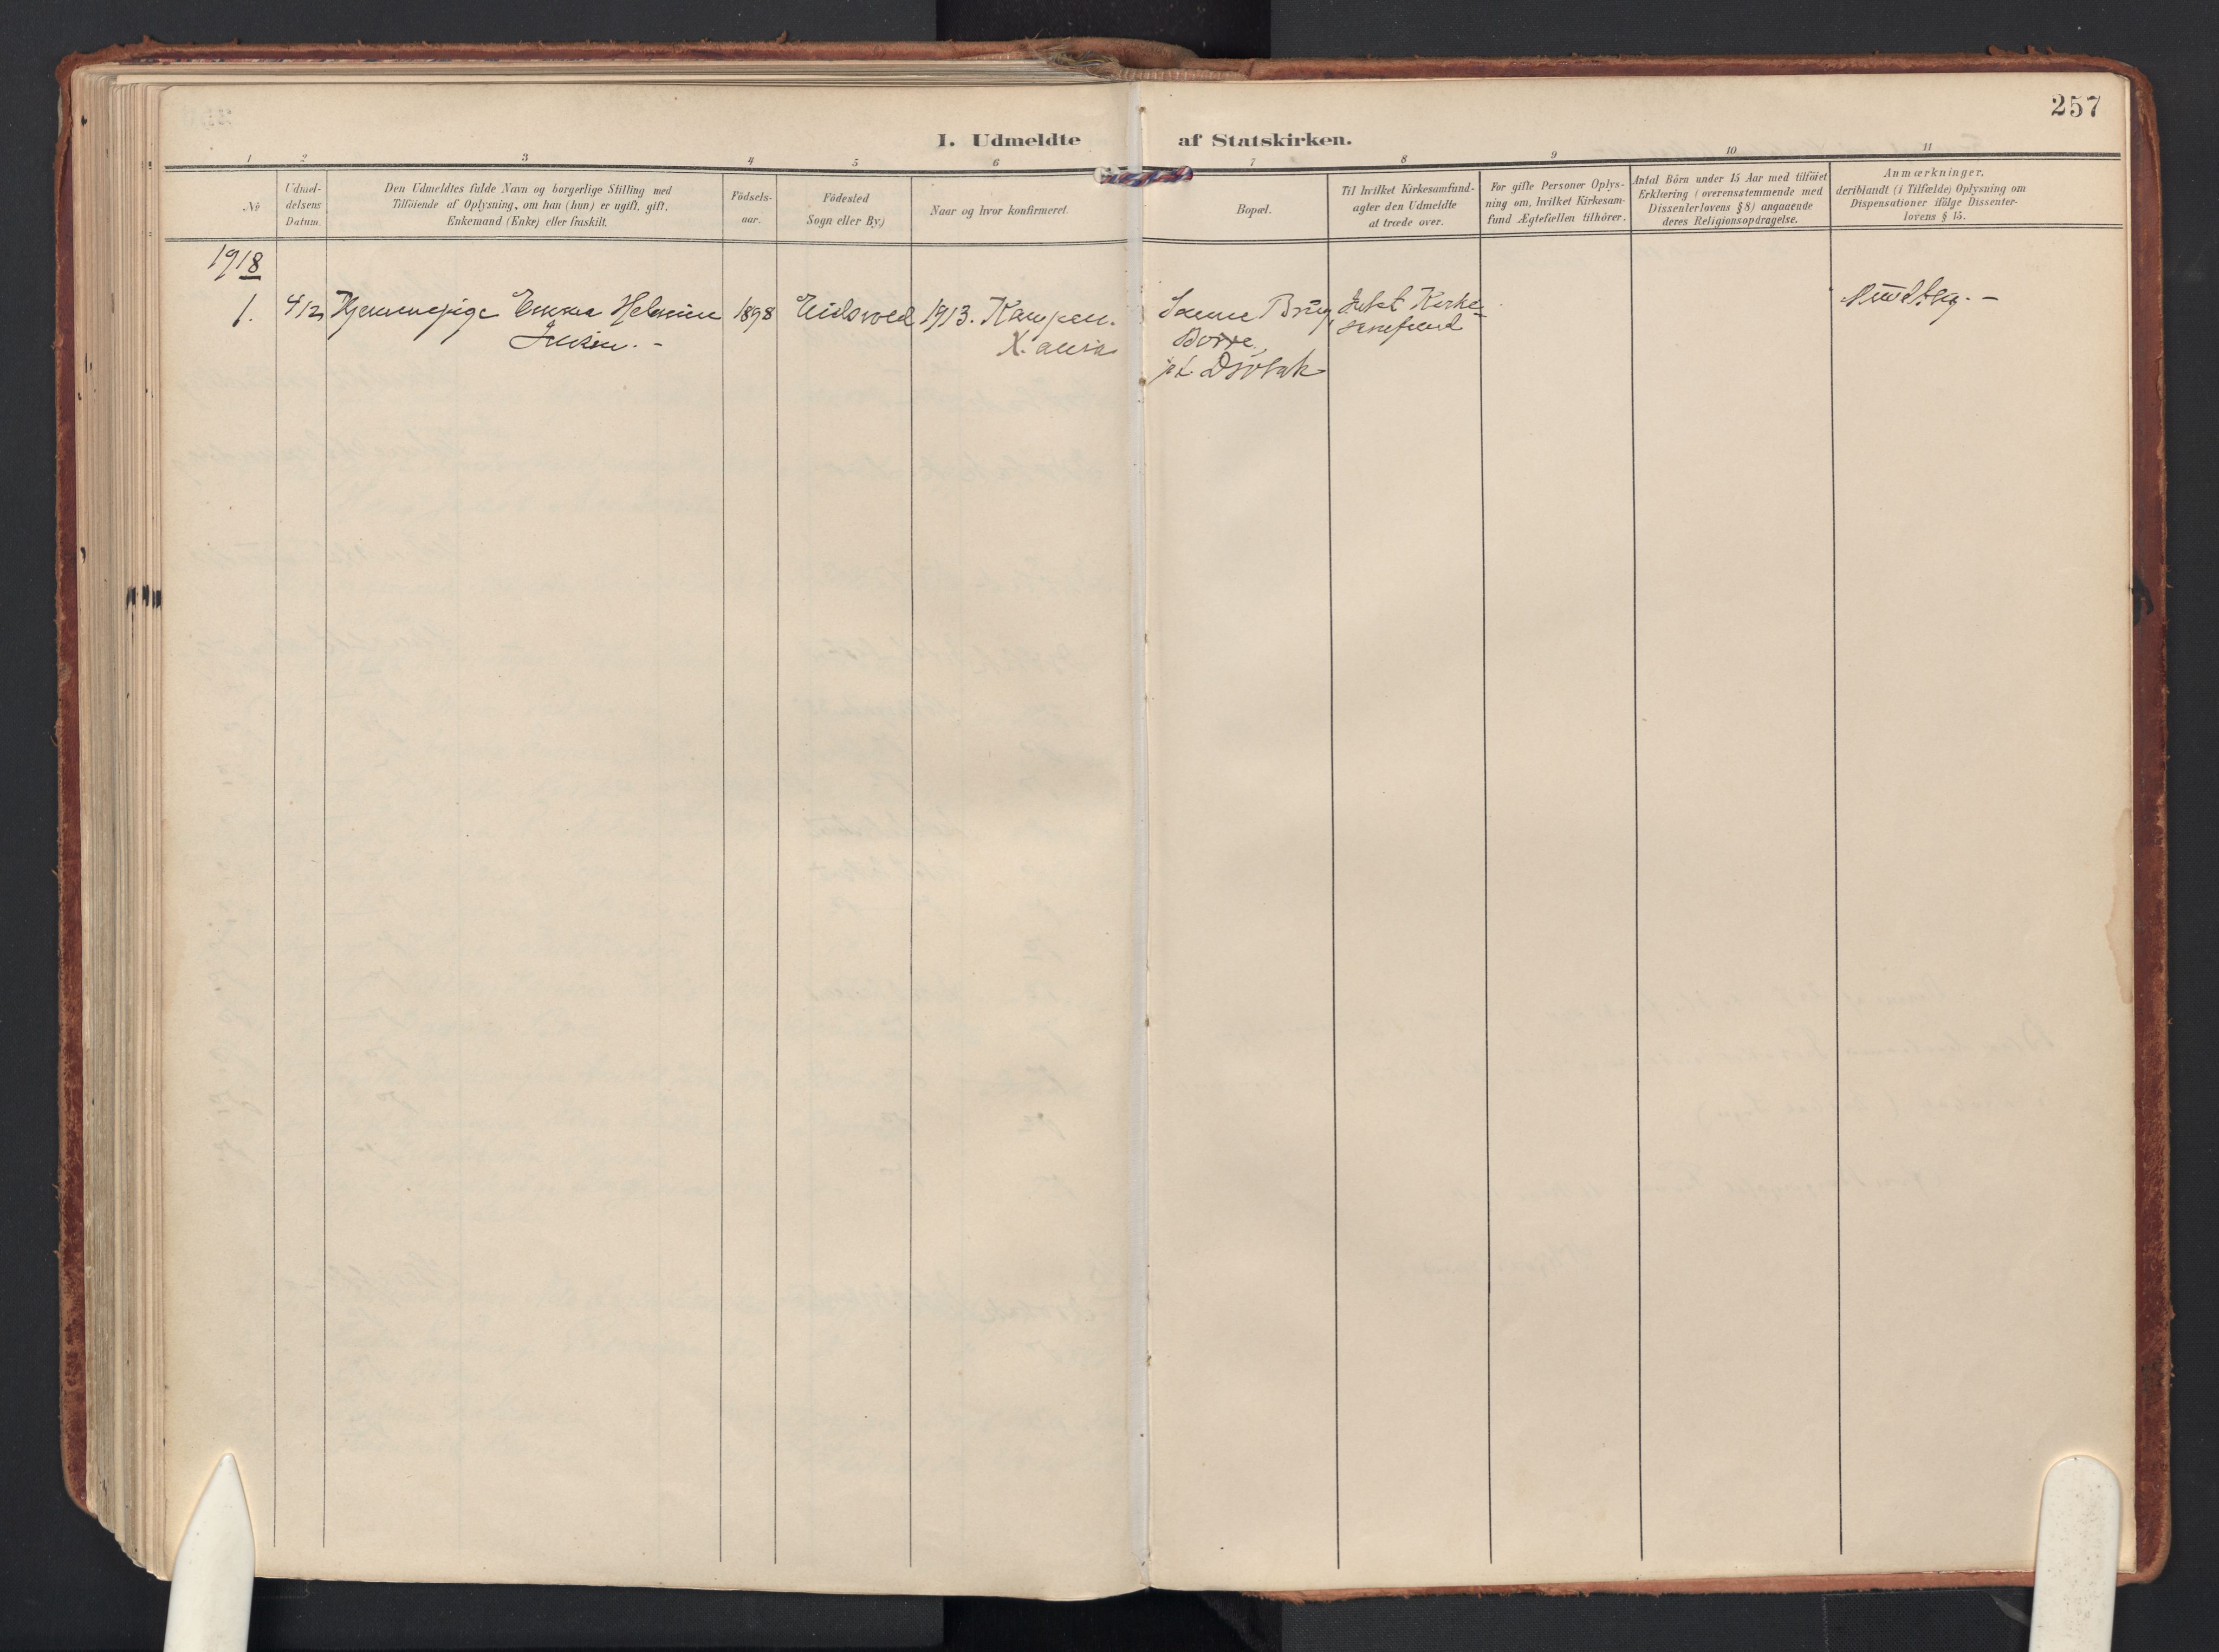 257
I. Udmeldte af Statskirken.
1 2 3 4 5 6 7 8 9 10 11
No
Udmel-
delsens
Datum.
Den Udmeldtes fulde Navn og borgerlige Stilling med
Tilföiende af Oplysning, om han (hun) er ugift, gift,
Enkemand (Enke) eller fraskilt.
Födsels-
aar.
Födested
Sogn eller By.)
Naar og hvor konfirmeret.
Bopæl.
Til hvilket Kirkesamfund-
agter den Udmeldte
at træde over.
For gifte Personer Oplys-
ning om, hvilket Kirkesam-
fund Ægtefællen tilhörer.
Antal Börn under 15 Aar med tilföiet
Erklæring (overensstemmende med
Dissenterlovens §8) angaaende
deres Religionsopdragelse.
Anmærkninger,
deriblandt (i Tilfælde) Oplysning om
Dispensationer ifölge Dissenter-
lovens § 15.
1918
1. 4/12 Hjemmepige Emma Helmine 1898 Eidsvold 1913. Kampen. Kirke-
Jensen. - samfund
Borre
Dröbak